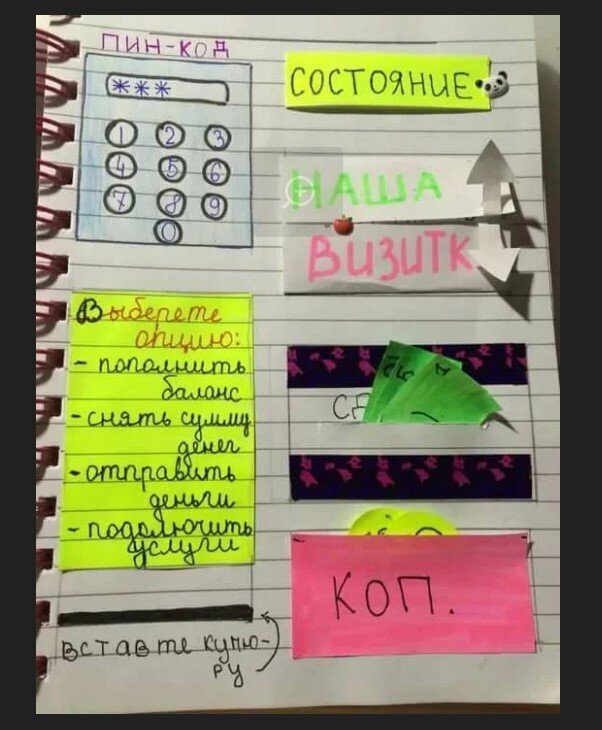 ПИН-КОД
***
1 2 3
4 5 6
7 8 9
0
Выберете
опцию:
- пополнить
баланс
- снять сумму
денег
- отправить
деньги
- подключить
услуги
вставте купю-
ру
СОСТОЯНИЕ
НАША
ВИЗИТК
СД
КОП.